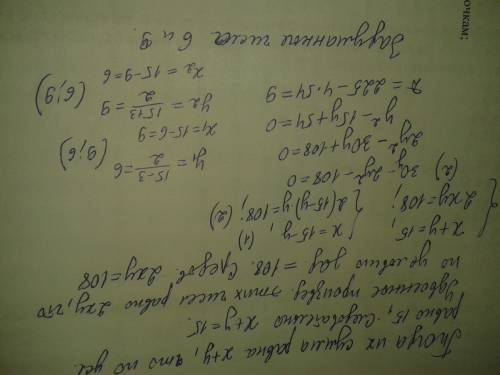 Тогда их сумма равна x+y, что по усл.
равно 15, Следовательно x+y=15.
Удвоенное произвед. этих чисел равно 2xy, что
по условию зад. = 108. Следов. 2xy=108
{ x+y=15, { x=15-y, (1)
2xy=108; 2(15-y)y=108; (2)
(2) 30y-2y²-108=0
2y²-30y+108=0
y²-15y+54=0
D=225-4·54=9
y₁=15-3/2=6
x₁=15-6=9 (9;6)
y₂=15+3/2=9
x₂=15-9=6 (6;9)
Задуманные числа 6 и 9.
очкам;